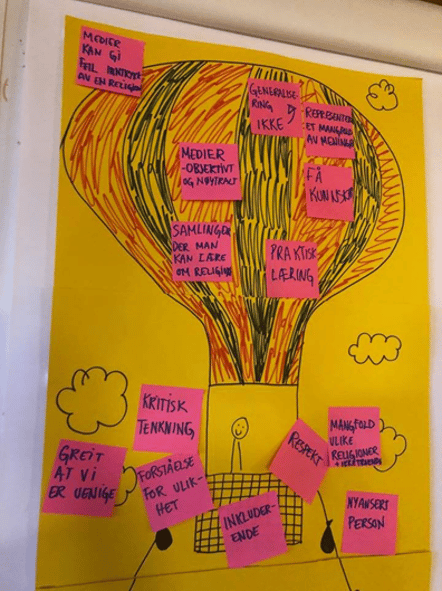 MEDIER
KAN GI
FEIL INNTRYKK
AV EN RELIGION
GENERALISE-
RING
IKKE
REPRESENTERE
ET MANGFOLD
AV MENINGER
MEDIER
-OBJEKTIVT
OG NØYTRALT
FÅ
KUNNSKAP
SAMLINGER
DER MAN
KAN LÆRE
OM RELIGION
PRAKTISK
LÆRING
KRITISK
TENKNING
MANGFOLD
ULIKE
RELIGIONER
RESPEKT
GREIT
AT VI
ER UENIGE
FORSTÅELSE
FOR ULIK-
HET
INKLUDER-
ENDE
NYANSERT
PERSON